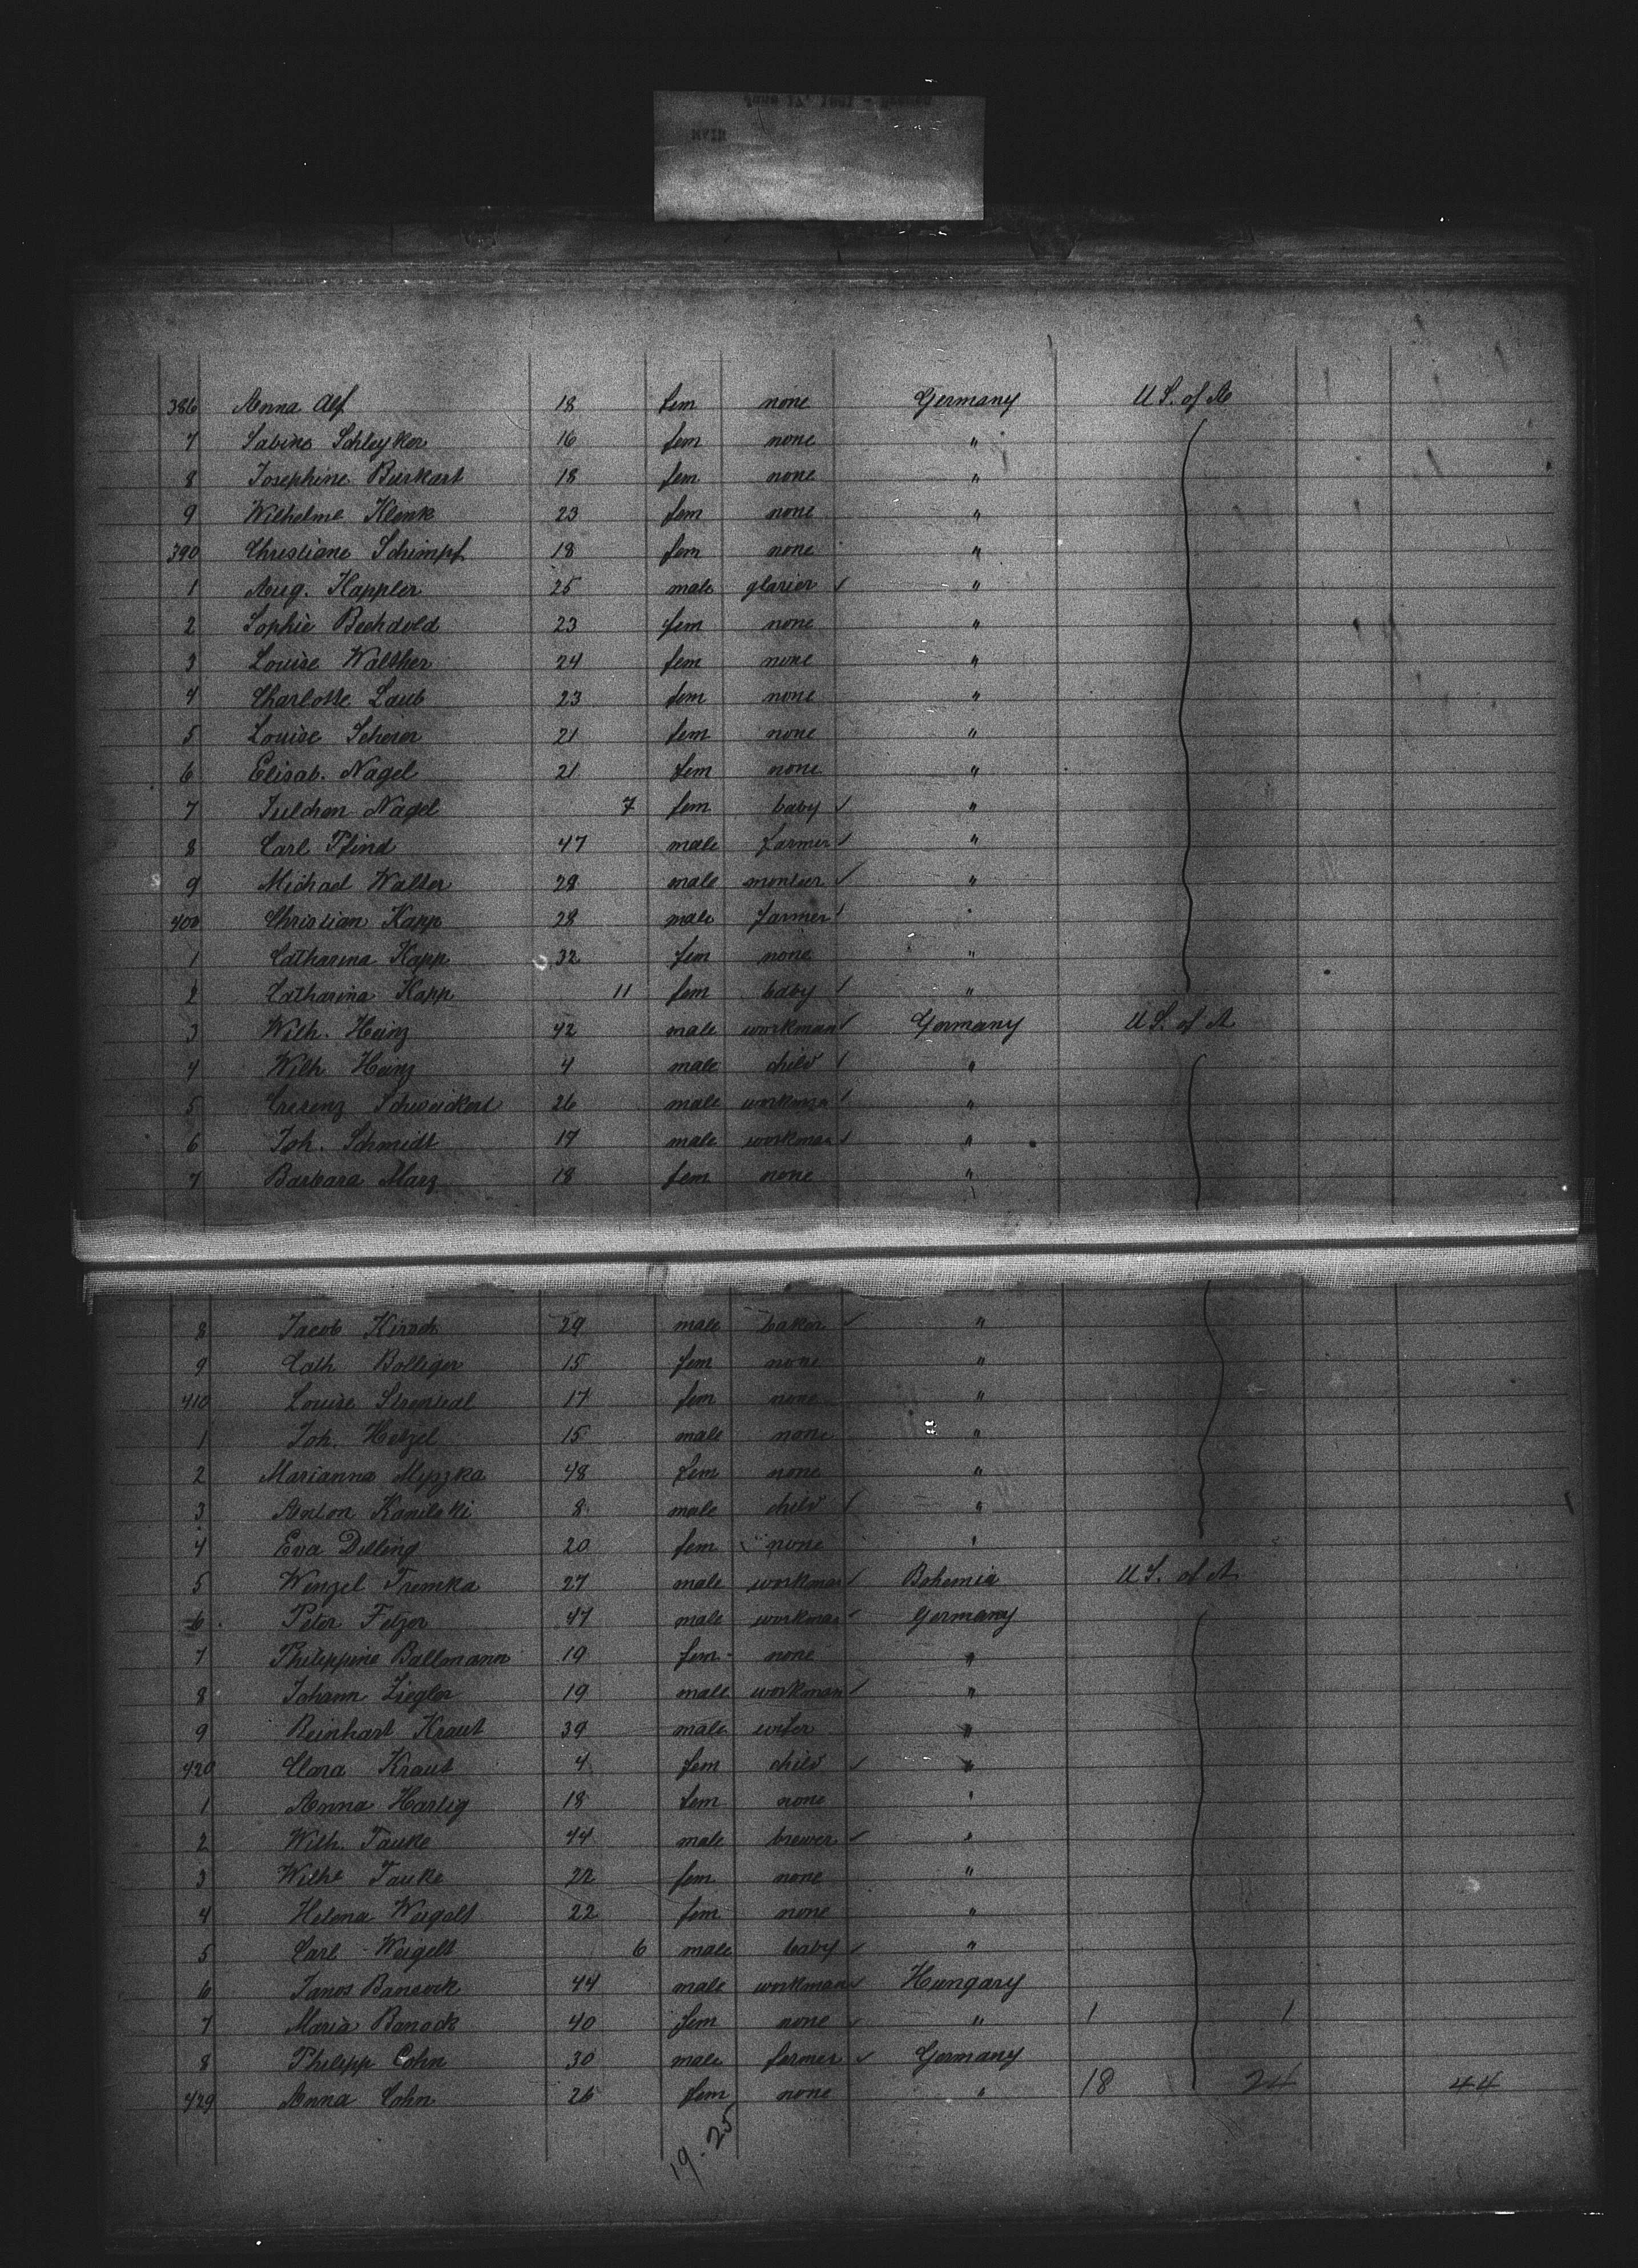 386 Anna Alf 18 fem none Germany U S. of A
7 Sabine Schleyker 16 fem none "
8 Josephine Burkart 18 fem none "
9 Wilhelme Klenk 23 fem none "
390 Christiane Schimpf 18 fem none "
1 Aug. Kappler 25 male glazier ✓ "
2 Sophie Bechdold 23 fem none "
3 Louise Walther 24 fem none "
4 Charlotte Laub 23 fem none "
5 Louise Scherer 21 fem none "
6 Elisab. Nagel 21 fem none "
7 Julchen Nagel 7 fem baby ✓ "
8 Carl Pfind 47 male farmer ✓ "
9 Michael Walter 28 male ✓ "
400 Christian Kapp 28 male farmer ✓ "
1 Catharina Kapp 32 fem none "
2 Catharina Kapp 11 fem baby ✓ "
3 Wilh. Heinz 42 male workman ✓ Germany U S. of A
4 Wilh Heinz 4 male child ✓ "
5 Crescenz Schweickert 26 male workman ✓ "
6 Joh. Schmidt 17 male workman ✓ "
7 Barbara Marz 18 fem none "
8 Jacob Kirsch 29 male baker ✓ "
9 Cath Bolliger 15 fem none "
410 Louise 17 fem none "
1 Joh. Hetzel 15 male none "
2 Marianna Myszka 48 fem none "
3 Anton Kamilski 8 male child ✓ "
4 Eva Dilling 20 fem none "
5 Wenzel Tremka 27 male workman ✓ Bohemia U S. of A
6 Peter Felzer 47 male workman ✓ Germany
7 Philippine Ballmann 19 fem none "
8 Johann Ziegler 19 male workman ✓ "
9 Reinhart Kraut 39 male "
420 Clara Kraut 4 fem child ✓ "
1 Anna Hartig 18 fem none "
2 Wilh. Tauke 44 male brewer ✓ "
3 Wilhe Tauke 22 fem none "
4 Helena Weigelt 22 fem none "
5 Carl Weigelt 6 male baby ✓ "
6 Janos Banock 44 male workman ✓ Hungary
7 Maria Banock 40 fem none ✓ " 1 1
8 Philipp Cohn 30 male farmer ✓ Germany
429 Anna Cohn 26 fem none " 18 24 44
19. 25